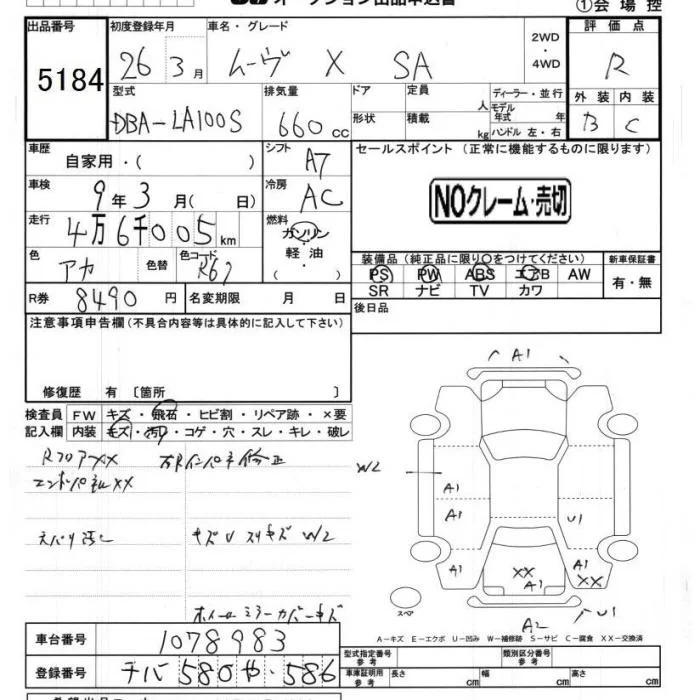 オークション出品申込書
①会場控
出品番号 5184
初度登録年月 26 3月
車名・グレード ムーヴ X SA
2WD・4WD
評価点 R
型式 DBA-LA100S
排気量 660cc
ドア 形状
定員 人
積載 kg
ディーラー・並行
モデル年式 年
ハンドル 左・右
外装 B
内装 C
車歴 自家用・( )
シフト A7
セールスポイント(正常に機能するものに限ります)
車検 9年3月( 日)
冷房 AC
NOクレーム・売切
走行 4万6千005km
燃料 ガソリン・軽油・( )
色 アカ 色替
色コード R67
装備品(純正品に限り○をつけてください)
新車保証書
PS PW ABS エアB AW
SR ナビ TV カワ
有・無
R券 8490円
名変期限 月 日
後日品
注意事項申告欄(不具合内容等は具体的に記入して下さい)
修復歴 有〔箇所 〕
検査員記入欄
FW キズ・飛石・ヒビ割・リペア跡・×要
内装 キズ・汚れ・コゲ・穴・スレ・キレ・破レ
RフロアXX
エンドパネルXX
インパネ修正
キズU スリキズ W2
ホイールミラーカバーキズ
A1
W2
A1
A1
U1
A1
XX
A1
A1
XX
スペア
A2
U1
A-キズ E-エクボ U-凹み W-補修跡 S-サビ C-腐食 XX-交換済
車台番号 1078983
登録番号 チバ 580や・586
型式指定番号 参考
類別区分番号 参考
車庫証明用 参考
長さ cm
幅 cm
高さ cm